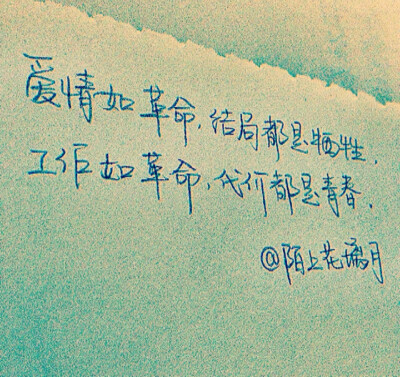 爱情如革命,结局都是牺牲,
工作如革命,代价都是青春.
@陌上花璃月